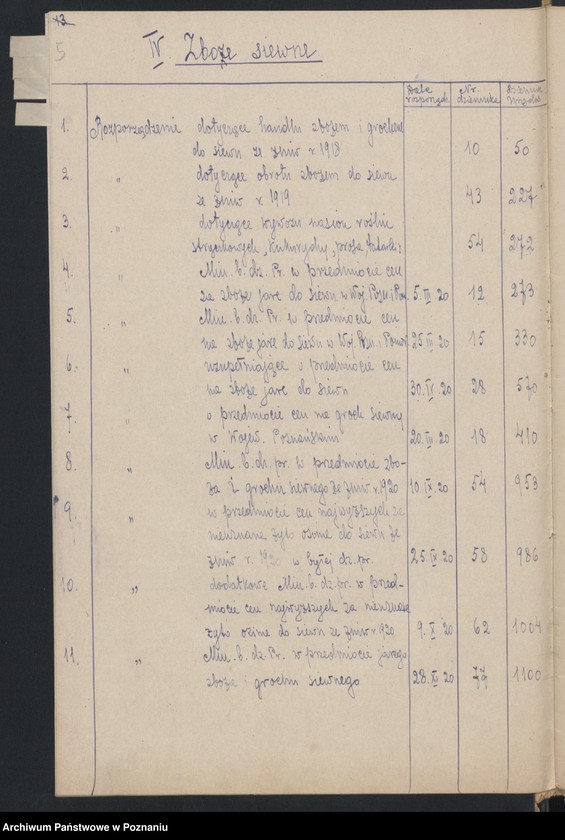 13
5
IV Zboże siewne
Data rozporządz. Nr. dziennika Dziennik
1. Rozporządzenie dotyczące handlu zbożem i grochem
do siewu ze żniw r. 1918 10 50
2. " dotyczące obrotu zbożem do siewu
ze żniw r. 1919 43 227
3. " dotyczące wywozu nasion roślin
strączkowych, kukurydzy, prosa, tatarki 54 272
4. " Min. b. dz. Pr. w przedmiocie cen
za zboże jare do siewu w Woj. Pozn. i Pom. 5.III.20 12 273
5. " Min. b. dz. Pr. w przedmiocie cen
na zboże jare do siewu w Woj. Pozn. i Pomor. 25.III.20 15 330
6. " uzupełniające o przedmiocie cen
na zboże jare do siewu 30.IV.20 28 570
7. " o przedmiocie cen na groch siewny
w Wojew. Poznańskim 20.III.20 18 410
8. " Min. b. dz. pr. w przedmiocie zbo-
ża i grochu siewnego ze żniw r. 1920 10.IX.20 54 953
9. " w przedmiocie cen najwyższych za
nieuznane żyto ozime do siewu ze
żniw r. 1920 w byłej dz. pr. 25.IX.20 58 986
10. " dodatkowe Min. b. dz. pr. w przed-
miocie cen najwyższych za nieuznane
żyto ozime do siewu ze żniw r. 1920 9.X.20 62 1004
11. " Min. b. dz. Pr. w przedmiocie jarego
zboża i grochu siewnego 28.XI.20 77 1100
Archiwum Państwowe w Poznaniu